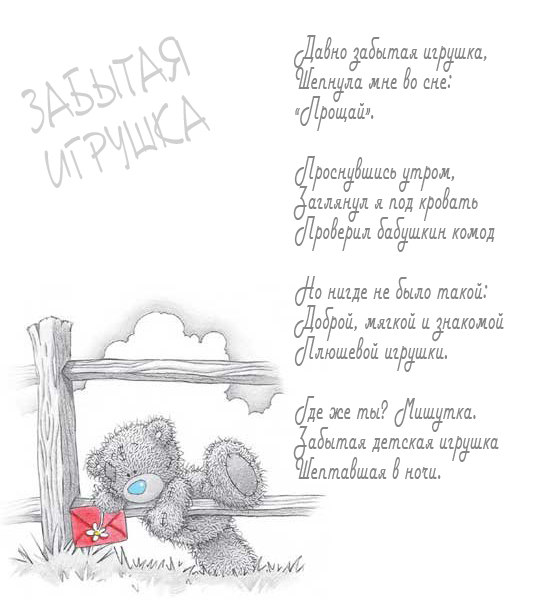 ЗАБЫТАЯ
ИГРУШКА
Давно забытая игрушка,
Шепнула мне во сне:
«Прощай».
Проснувшись утром,
Заглянул я под кровать
Проверил бабушкин комод
Но нигде не было такой:
Доброй, мягкой и знакомой
Плюшевой игрушки.
Где же ты? Мишутка.
Забытая детская игрушка
Шептавшая в ночи.